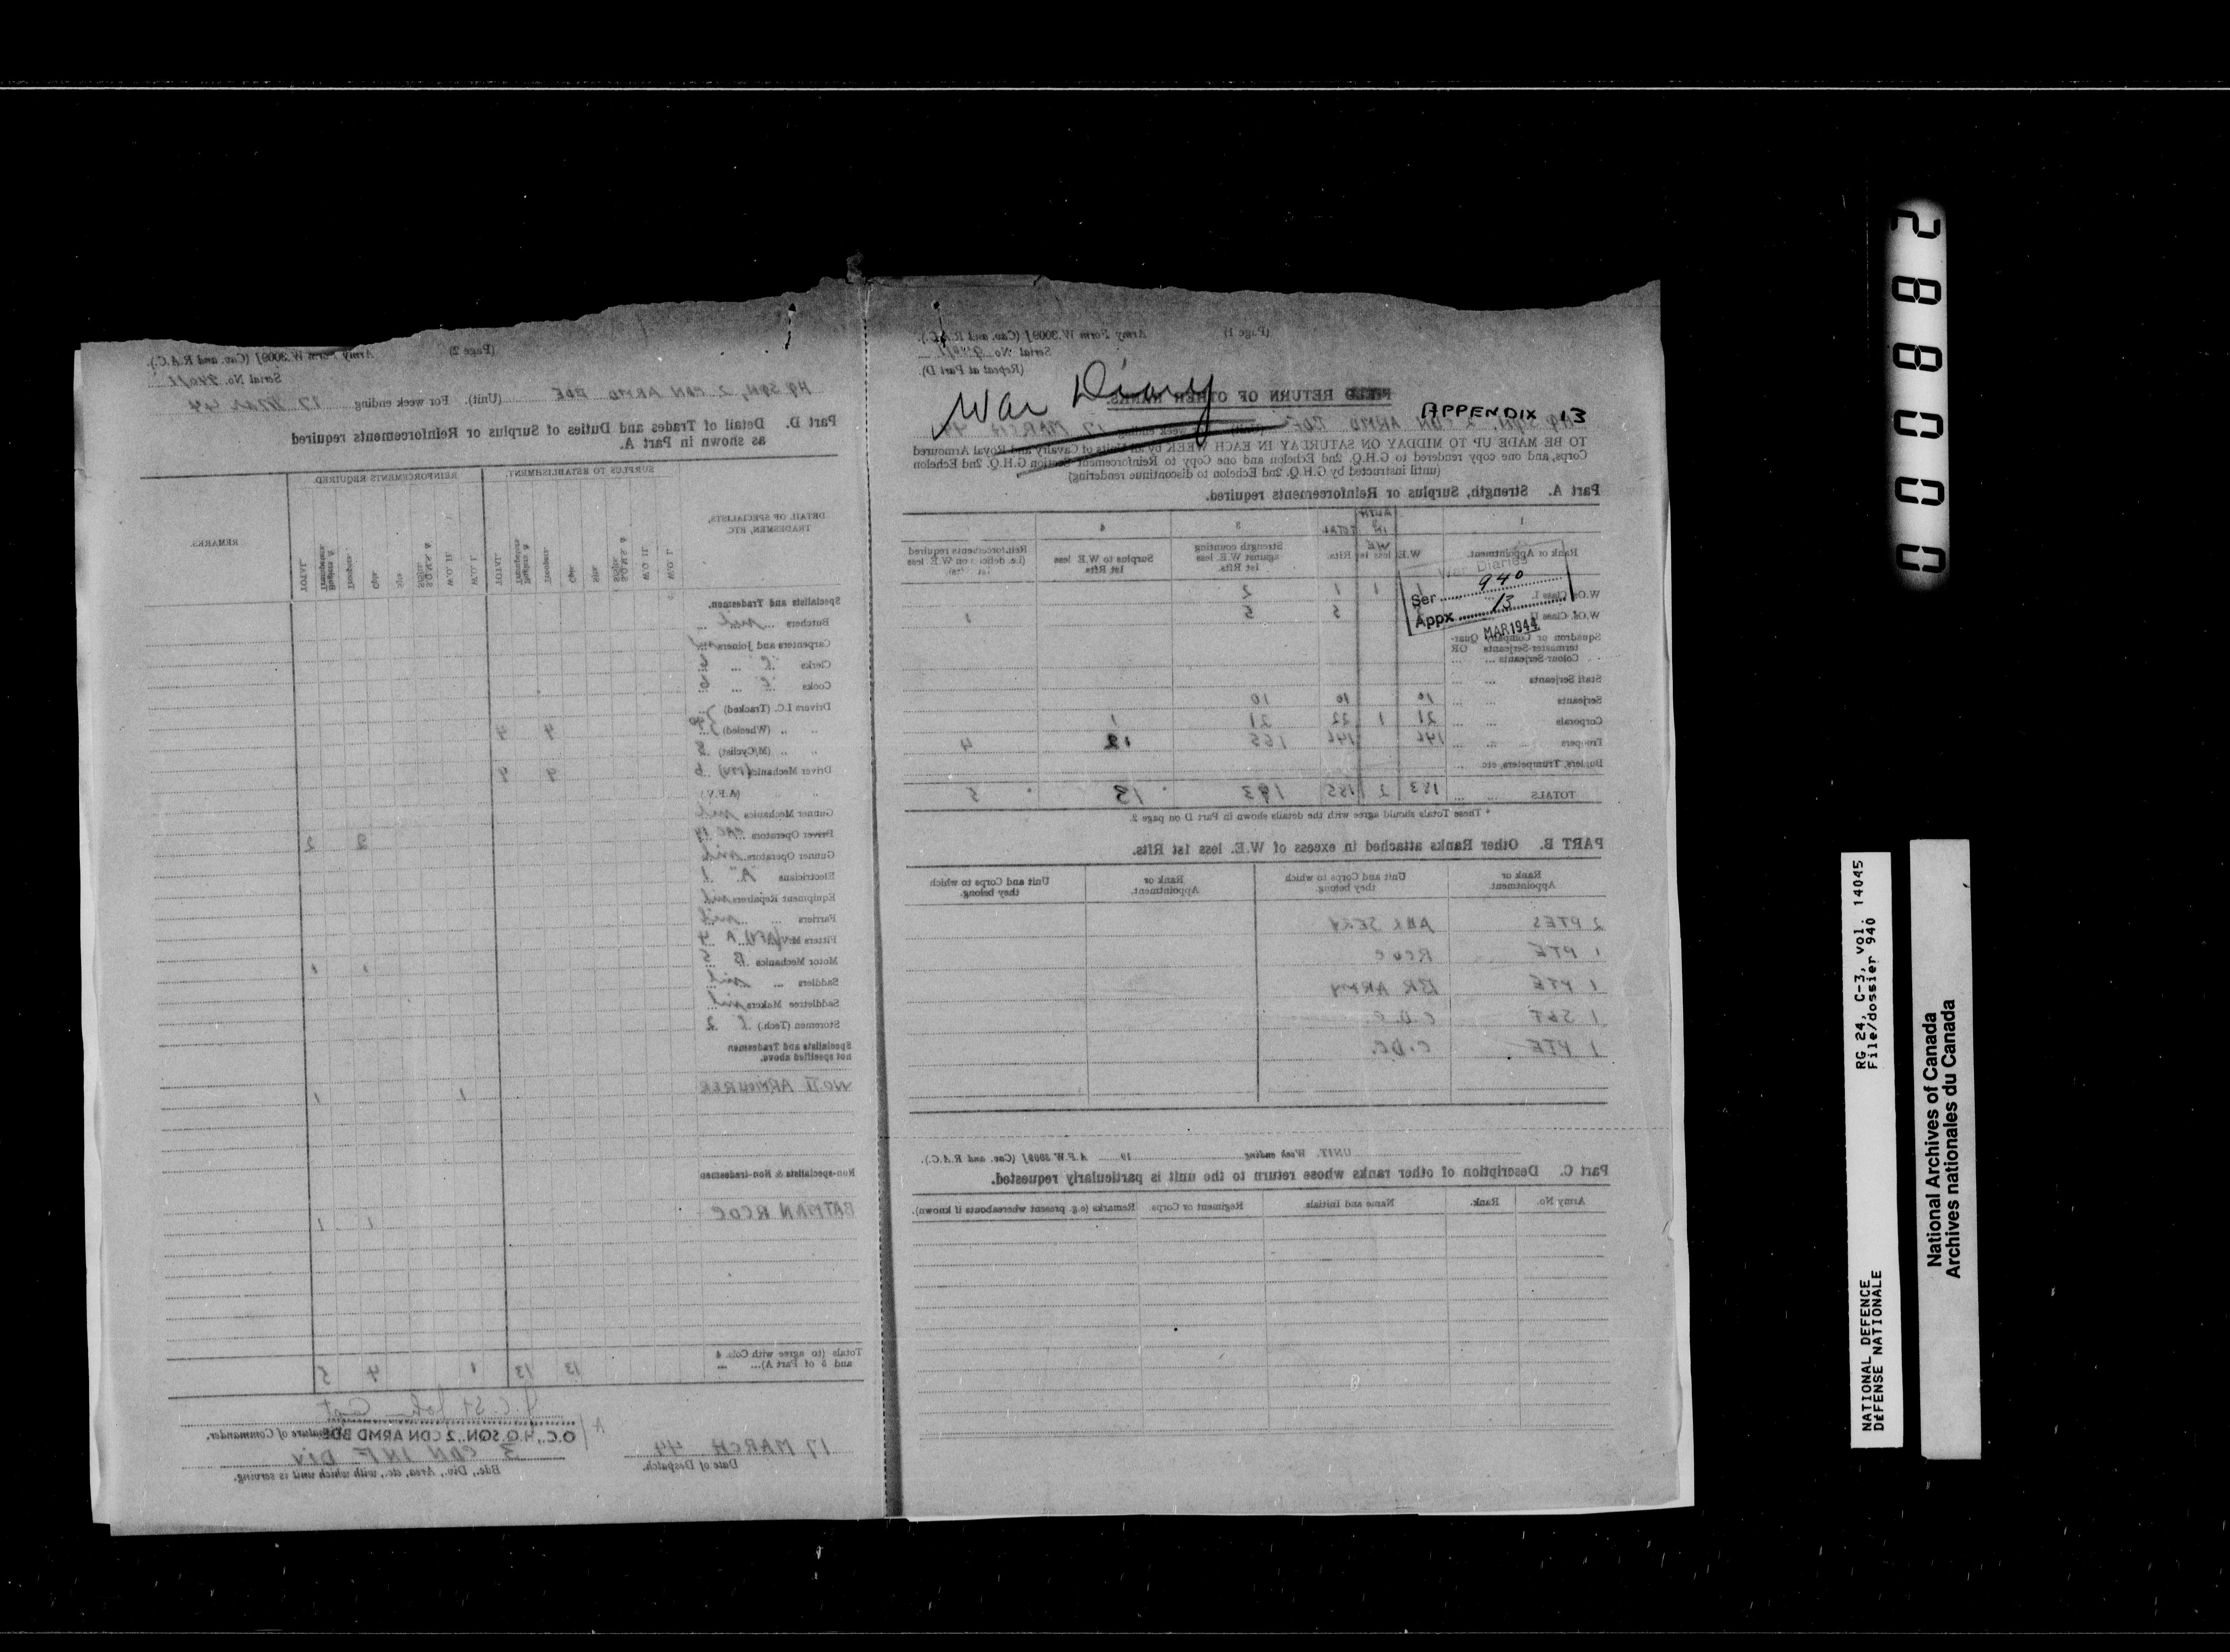 War Diary
APPENDIX 13
(Page 1)
Army Form W.3009J (Cav. and R.A.C.).
Serial No.
(Repeat at Part D)
FIELD RETURN OF OTHER RANKS.
HQ SQN, 2 CDN ARMD BDE (Unit) For week ending 17 MARCH 44
TO BE MADE UP TO MIDDAY ON SATURDAY IN EACH WEEK by all Units of Cavalry and Royal Armoured
Corps, and one copy rendered to G.H.Q. 2nd Echelon and one Copy to Reinforcement Section G.H.Q. 2nd Echelon
(until instructed by G.H.Q. 2nd Echelon to discontinue rendering)
Part A. Strength, Surplus or Reinforcements required.
Rank or Appointment.
W.E. less 1st Rfts.
TOTAL
Strength counting against W.E. less 1st Rfts.
Surplus to W.E. less 1st Rfts
Reinforcements required (i.e. deficit on W.E. less 1st Rfts)
War Diaries
Ser 940
Appx 13
MAR 1944
W.Os. Class I. 1 1 2
W.Os. Class II 5 5 1
Squadron or Company Quar-
termaster-Serjeants OR
Colour-Serjeants
Staff Serjeants
Serjeants 10 10 10
Corporals 21 1 22 21 1
Troopers 146 146 155 12 4
Buglers, Trumpeters, etc
TOTALS 183 2 185 193 13 5
* These Totals should agree with the details shown in Part D on page 2.
PART B. Other Ranks attached in excess of W.E. less 1st Rfts.
Rank or Appointment. Unit and Corps to which they belong. Rank or Appointment. Unit and Corps to which they belong.
2 PTES
1 PTE RCOC
1 PTE BR ARMY
1 SGT C.D.C.
1 PTE C.D.C.
UNIT. Week ending 19 A.F.W. 3009J (Cav. and R.A.C.).
Part C. Description of other ranks whose return to the unit is particularly requested.
Army No. Rank. Name and Initials Regiment or Corps Remarks (e.g. present whereabouts if known).
(Page 2)
Army Form W.3009J (Cav. and R.A.C.).
Serial No. 940/1
HQ SQN, 2 CDN ARMD BDE (Unit). For week ending 17 Mar 44
Part D. Detail of Trades and Duties of Surplus or Reinforcements required
as shown in Part A.
DETAIL OF SPECIALISTS, TRADESMEN, ETC
SURPLUS TO ESTABLISHMENT.
REINFORCEMENTS REQUIRED
REMARKS.
W.O. I. W.O. II. S.Q.M.S. & S/Sjts. Sjts Cpls Troopers Buglers & Trumpeters TOTAL
W.O. I. W.O. II. S.Q.M.S. & S/Sjts. Sjts Cpls Troopers Buglers & Trumpeters TOTAL
Specialists and Tradesmen.
Butchers nil
Carpenters and Joiners nil
Clerks
Cooks
Drivers I.C. (Tracked)
" " (Wheeled) 40 4 4
" " (M/Cyclist) 8
Driver Mechanics (MV) 6 9 9
" (A.F.V.)
Gunner Mechanics nil
Driver Operators 2 2
Gunner Operators nil
Electricians "A" 1
Equipment Repairers nil
Farriers nil
Fitters MV/AFV A 4
Motor Mechanics B 5 1 1
Saddlers nil
Saddletree Makers nil
Storemen (Tech.) 2
Specialists and Tradesmen
not specified above.
NO II ARMOURER 1 1
Non-specialists & Non-tradesmen
BATMAN RCOC 1 1
Totals (to agree with Cols. 4
and 5 of Part A) 13 13 1 4 5
J.C. St John Capt
O.C., H.Q. SQN., 2 CDN ARMD BDE
Signature of Commander.
3 CDN INF DIV
Bde., Div., Area, etc., with which unit is serving.
17 MARCH 44
Date of Despatch.
000882
NATIONAL DEFENCE RG 24, C-3, vol. 14045
DÉFENSE NATIONALE File/dossier 940
National Archives of Canada
Archives nationales du Canada